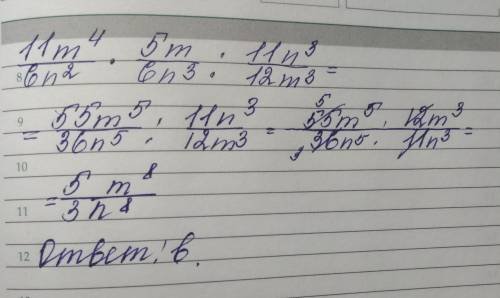 11m⁴/6n² · 5m/6n³ : 11n³/12m³ =
8
9
= 55m⁵/36n⁵ : 11n³/12m³ = 5 55m⁵ · 12m³ / 3 36n⁵ · 11n³ =
10
= 5 m⁸/3 n⁸
11
12 Ответ: в.